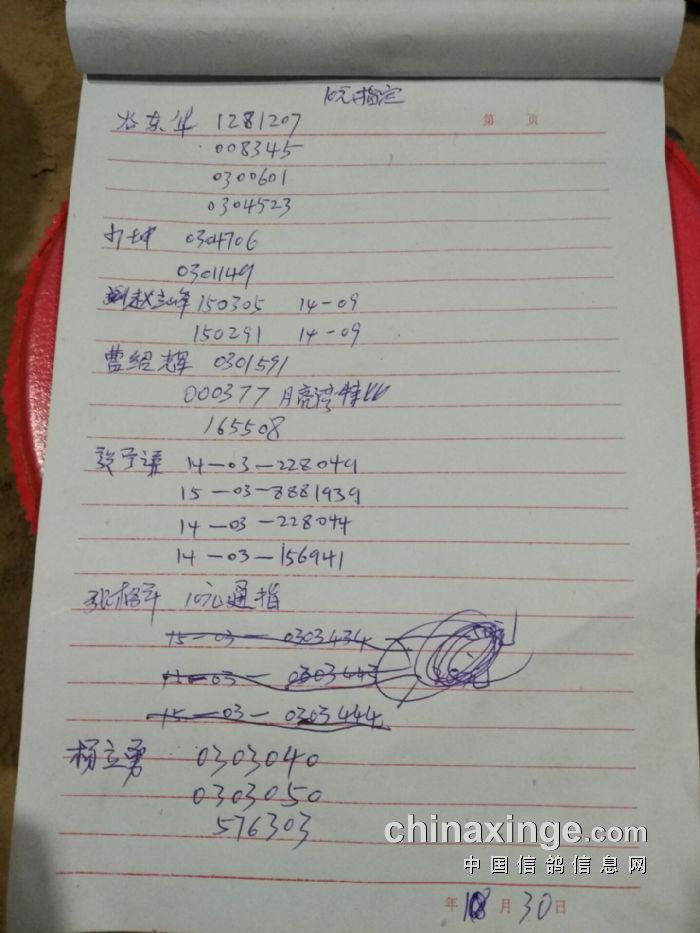 10元指定
第 页
谷东华 1281207
008345
0300601
0304523
坤 0304706
0301149
赵立峰 150305 14-09
150291 14-09
曹绍辉 0301591
000377 月亮湾特比
165508
14-03-228049
15-03-8881939
14-03-228044
14-03-156941
张格军 10元通指
15-03-0303434
0303443
15-03-0303444
杨立勇 0303040
0303050
576303
chinaxinge.com
中国信鸽信息网
年 10 月 30 日